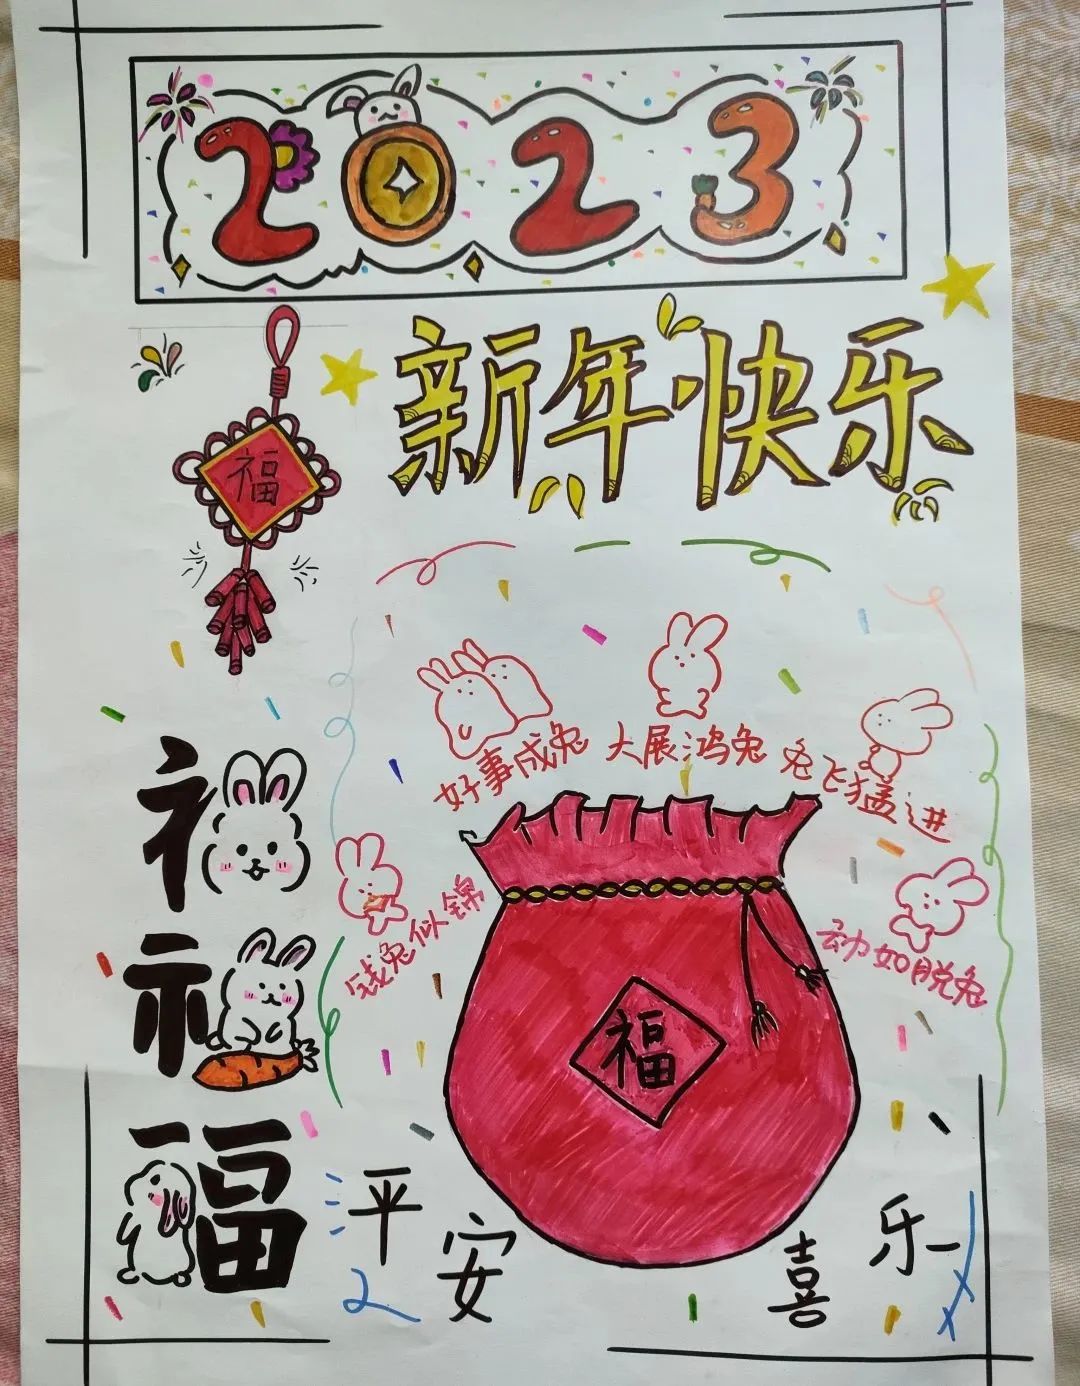 2023
新年快乐
福
好事成兔
大展鸿兔
兔飞猛进
钱兔似锦
动如脱兔
福
福
平安
喜乐